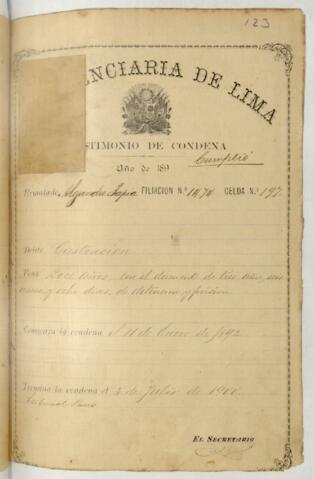 123
ENCIARIA DE LIMA
STIMONIO DE CONDENA
Año de 189
Cumplió
Rematado Alejandro Tapia FILIACION N.º 1474 CELDA N.º 197
Delito Castración
Pena Doce años, con el descuento de tres años, seis
meses y ocho dias, de detencion y prision
Comienza la condena el 11 de Enero de 1892
Termina la condena el 4 de Julio de 1900.
Tribunal
EL SECRETARIO